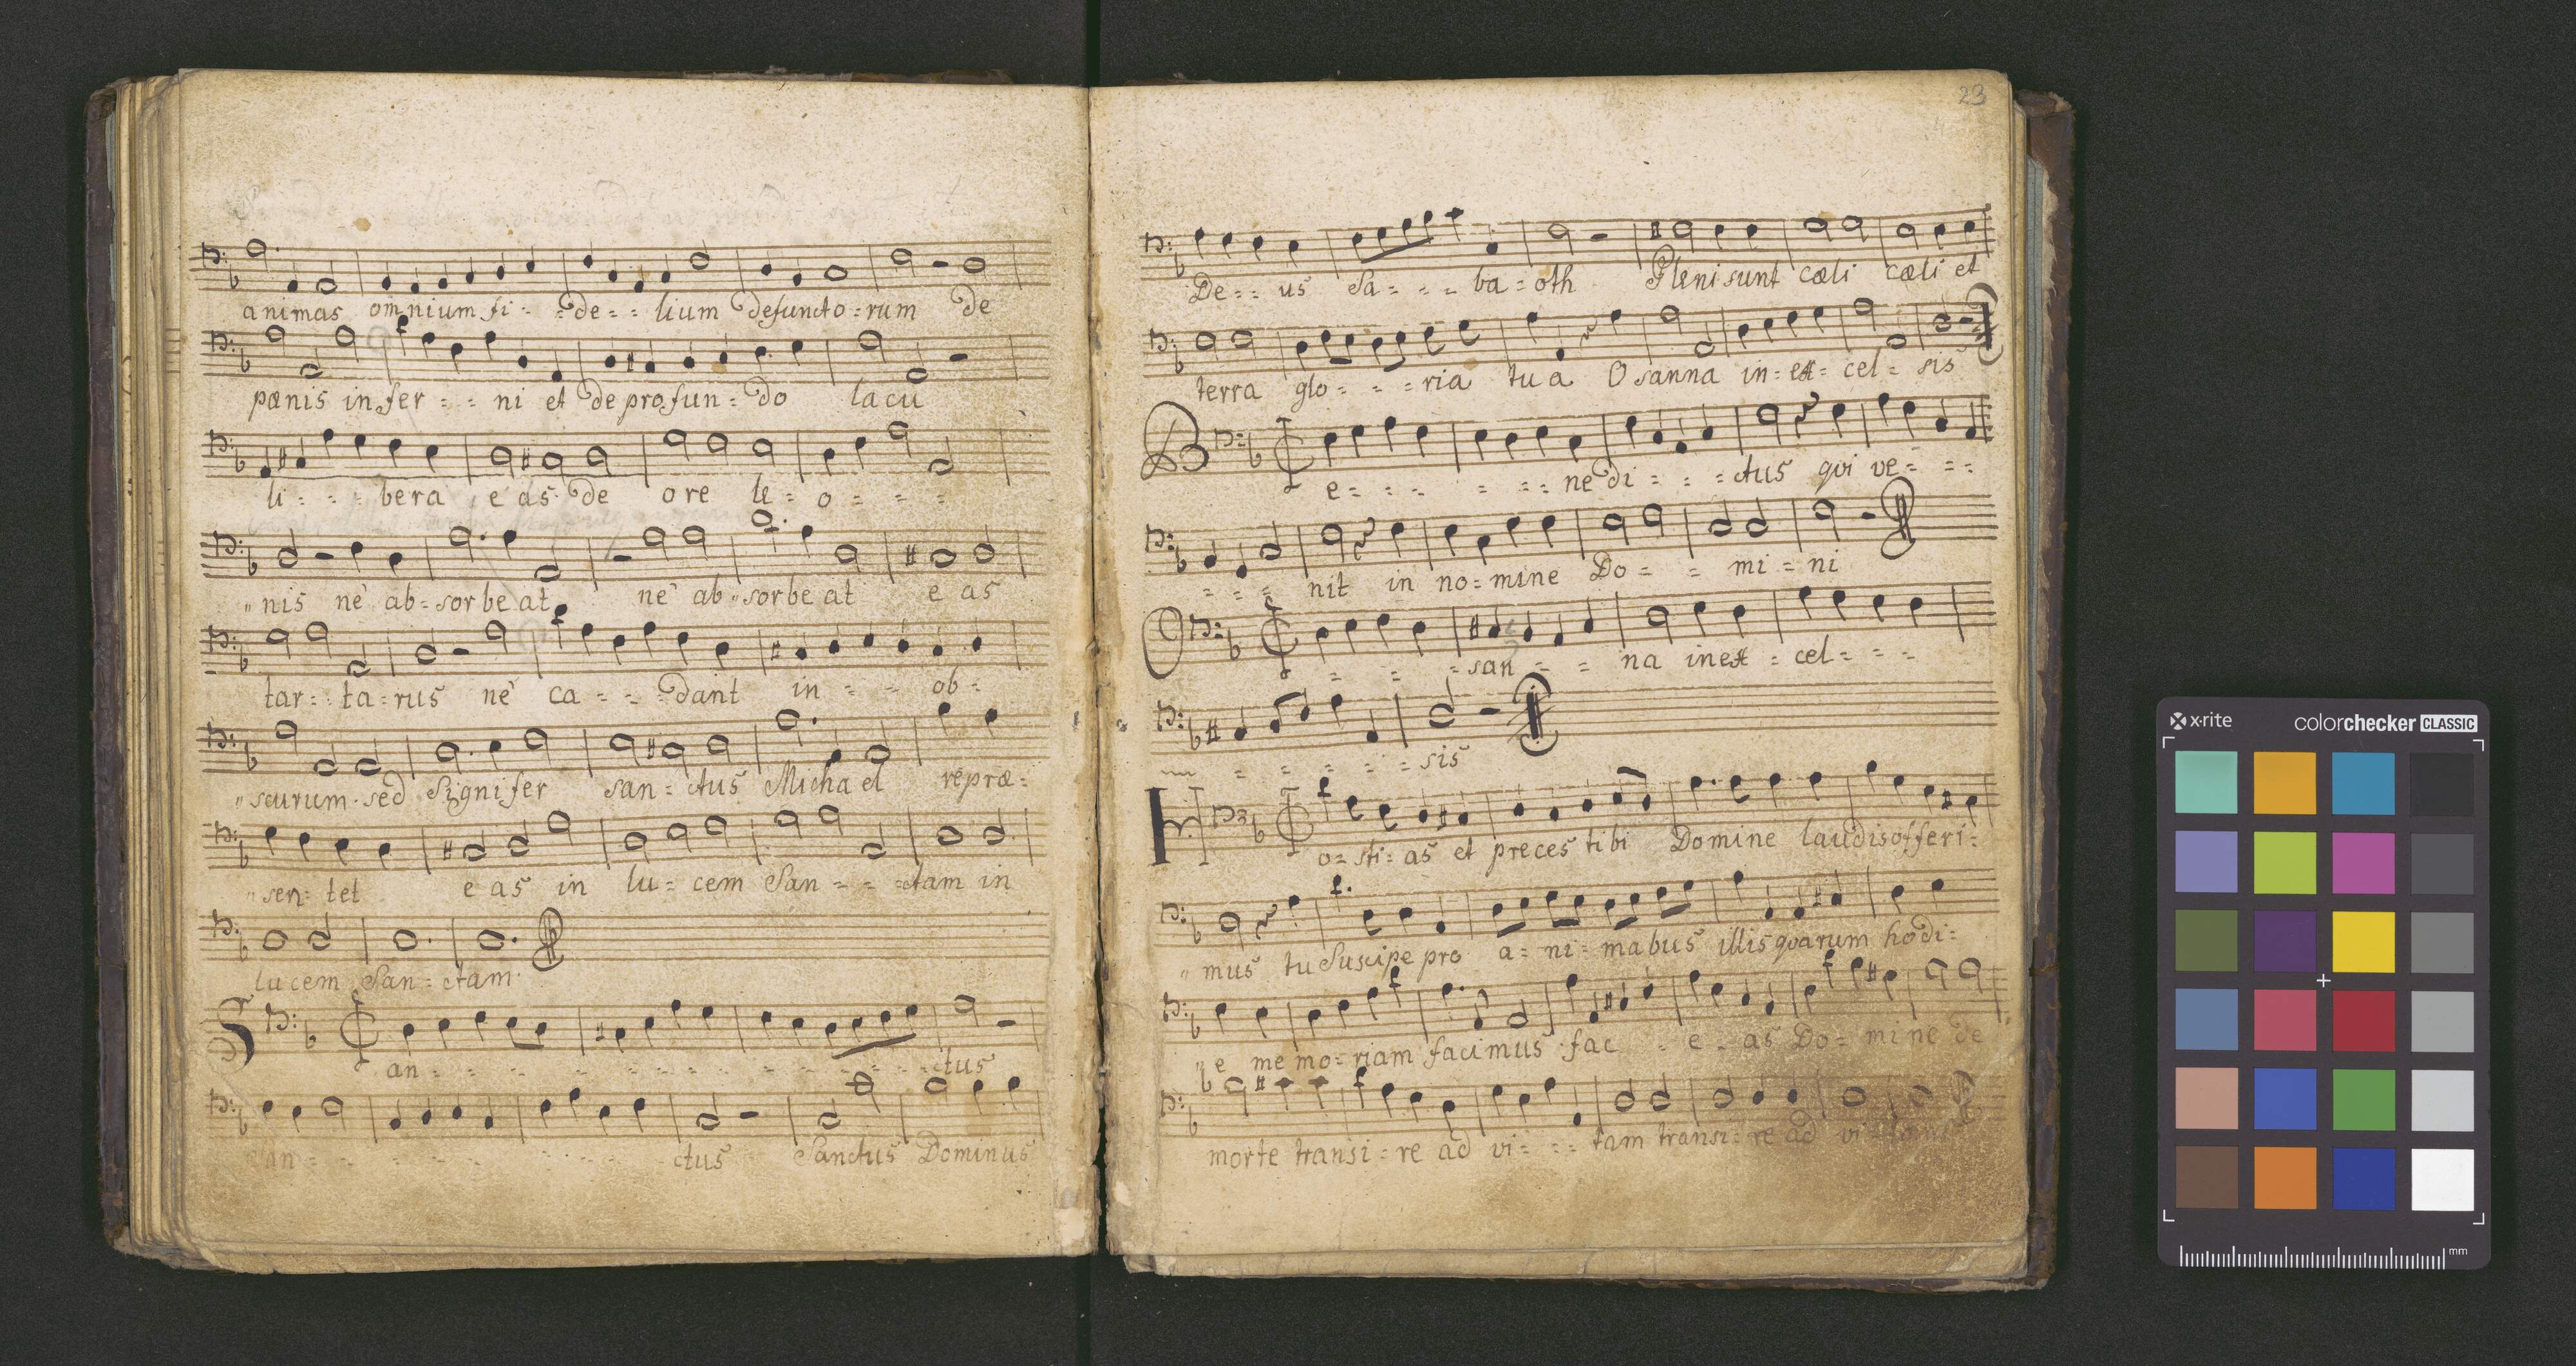 animas omnium fi = = de = = lium defuncto = rum de
pænis infer = = ni et de profun = do lacu
li = = = bera e as de ore le = o = = =
" nis nè ab = sorbe at nè ab " sorbe at e as
tar = ta = rus nè ca = = = dant in = = ob =
" scurum sed Signifer san = ctus Micha el repræ =
" sen = tet e as in lu = cem San = = ctam in
lu cem San = ctam
S an = = = = = = = = = = = ctus
San = = = = = = ctus Sanctus Dominus
23
De = = us Sa = = = ba = oth Pleni sunt cæli cæli et
terra glo = = = ria tu a O sanna in = ex = cel = sis
B e = = = = = = ne di = = = ctus qvi ve = = =
= = = nit in no = mine Do = = mi = ni
O = = = san = = na in ex = cel = = =
= = = = = = sis
H o = sti = as et preces tibi Domine laudis offeri =
" mus tu Suscipe pro a = ni = ma bus illis qvarum hodi =
" e me mo = riam facimus fac = e = as Do = mi ne de
morte transi = re ad vi = = = tam transi = re ad vi =
x·rite colorchecker CLASSIC
mm